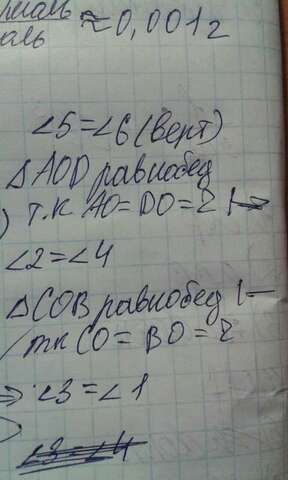 ≈0,001г
∠5=∠6(верт)
△AOD равнобед
) т.к AO=DO=r
∠2=∠4
△COB равнобед
тк CO=BO=r
⇒ ∠3=∠1
∠3=∠4